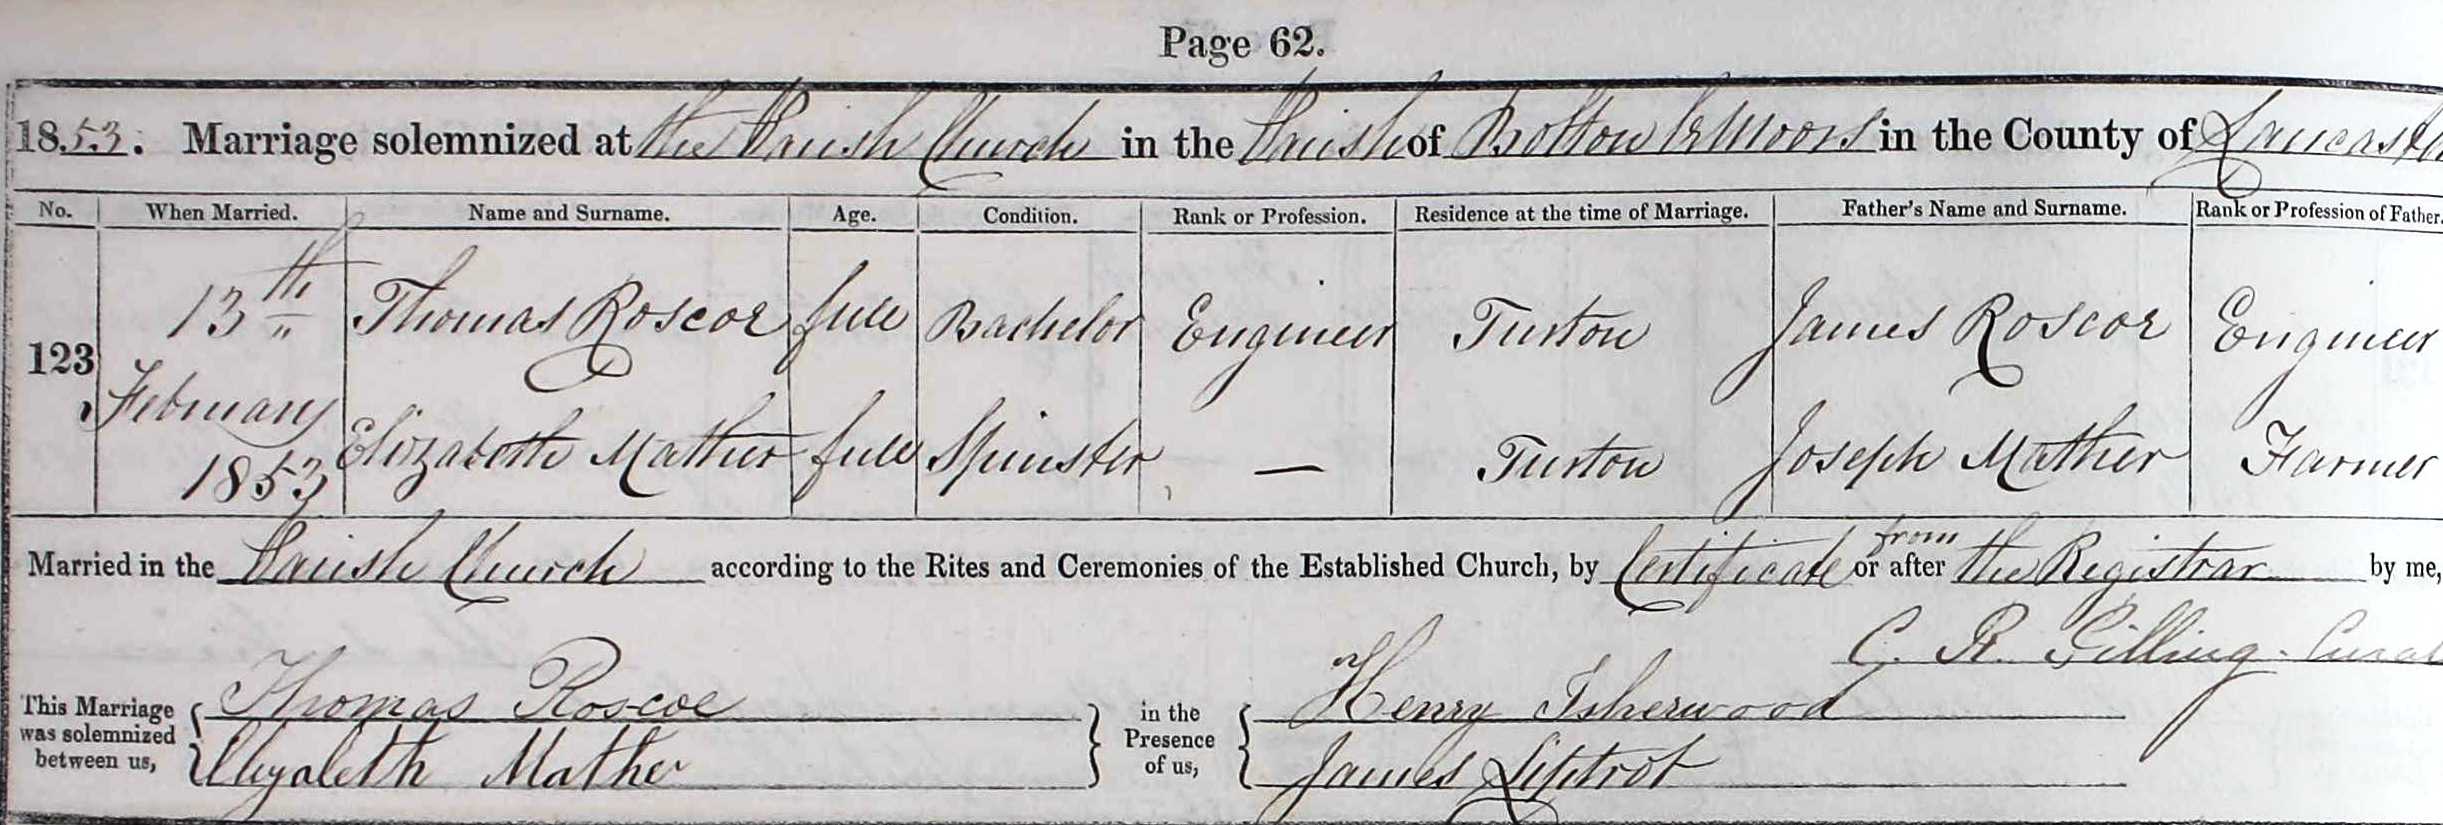 Page 62.
1853. Marriage solemnized at the Parish Church in the Parish of Bolton le Moors in the County of Lancaster
No. When Married. Name and Surname. Age. Condition. Rank or Profession. Residence at the time of Marriage. Father's Name and Surname. Rank or Profession of Father.
123 13th Thomas Roscoe full Bachelor Engineer Turton James Roscoe Engineer
February
1853 Elizabeth Mather full Spinster — Turton Joseph Mather Farmer
Married in the Parish Church according to the Rites and Ceremonies of the Established Church, by Certificate or from after the Registrar by me,
C. R. Gilling. Curat
This Marriage was solemnized between us, Thomas Roscoe in the Presence of us, Henry Isherwood
Elizabeth Mather James Liptrot